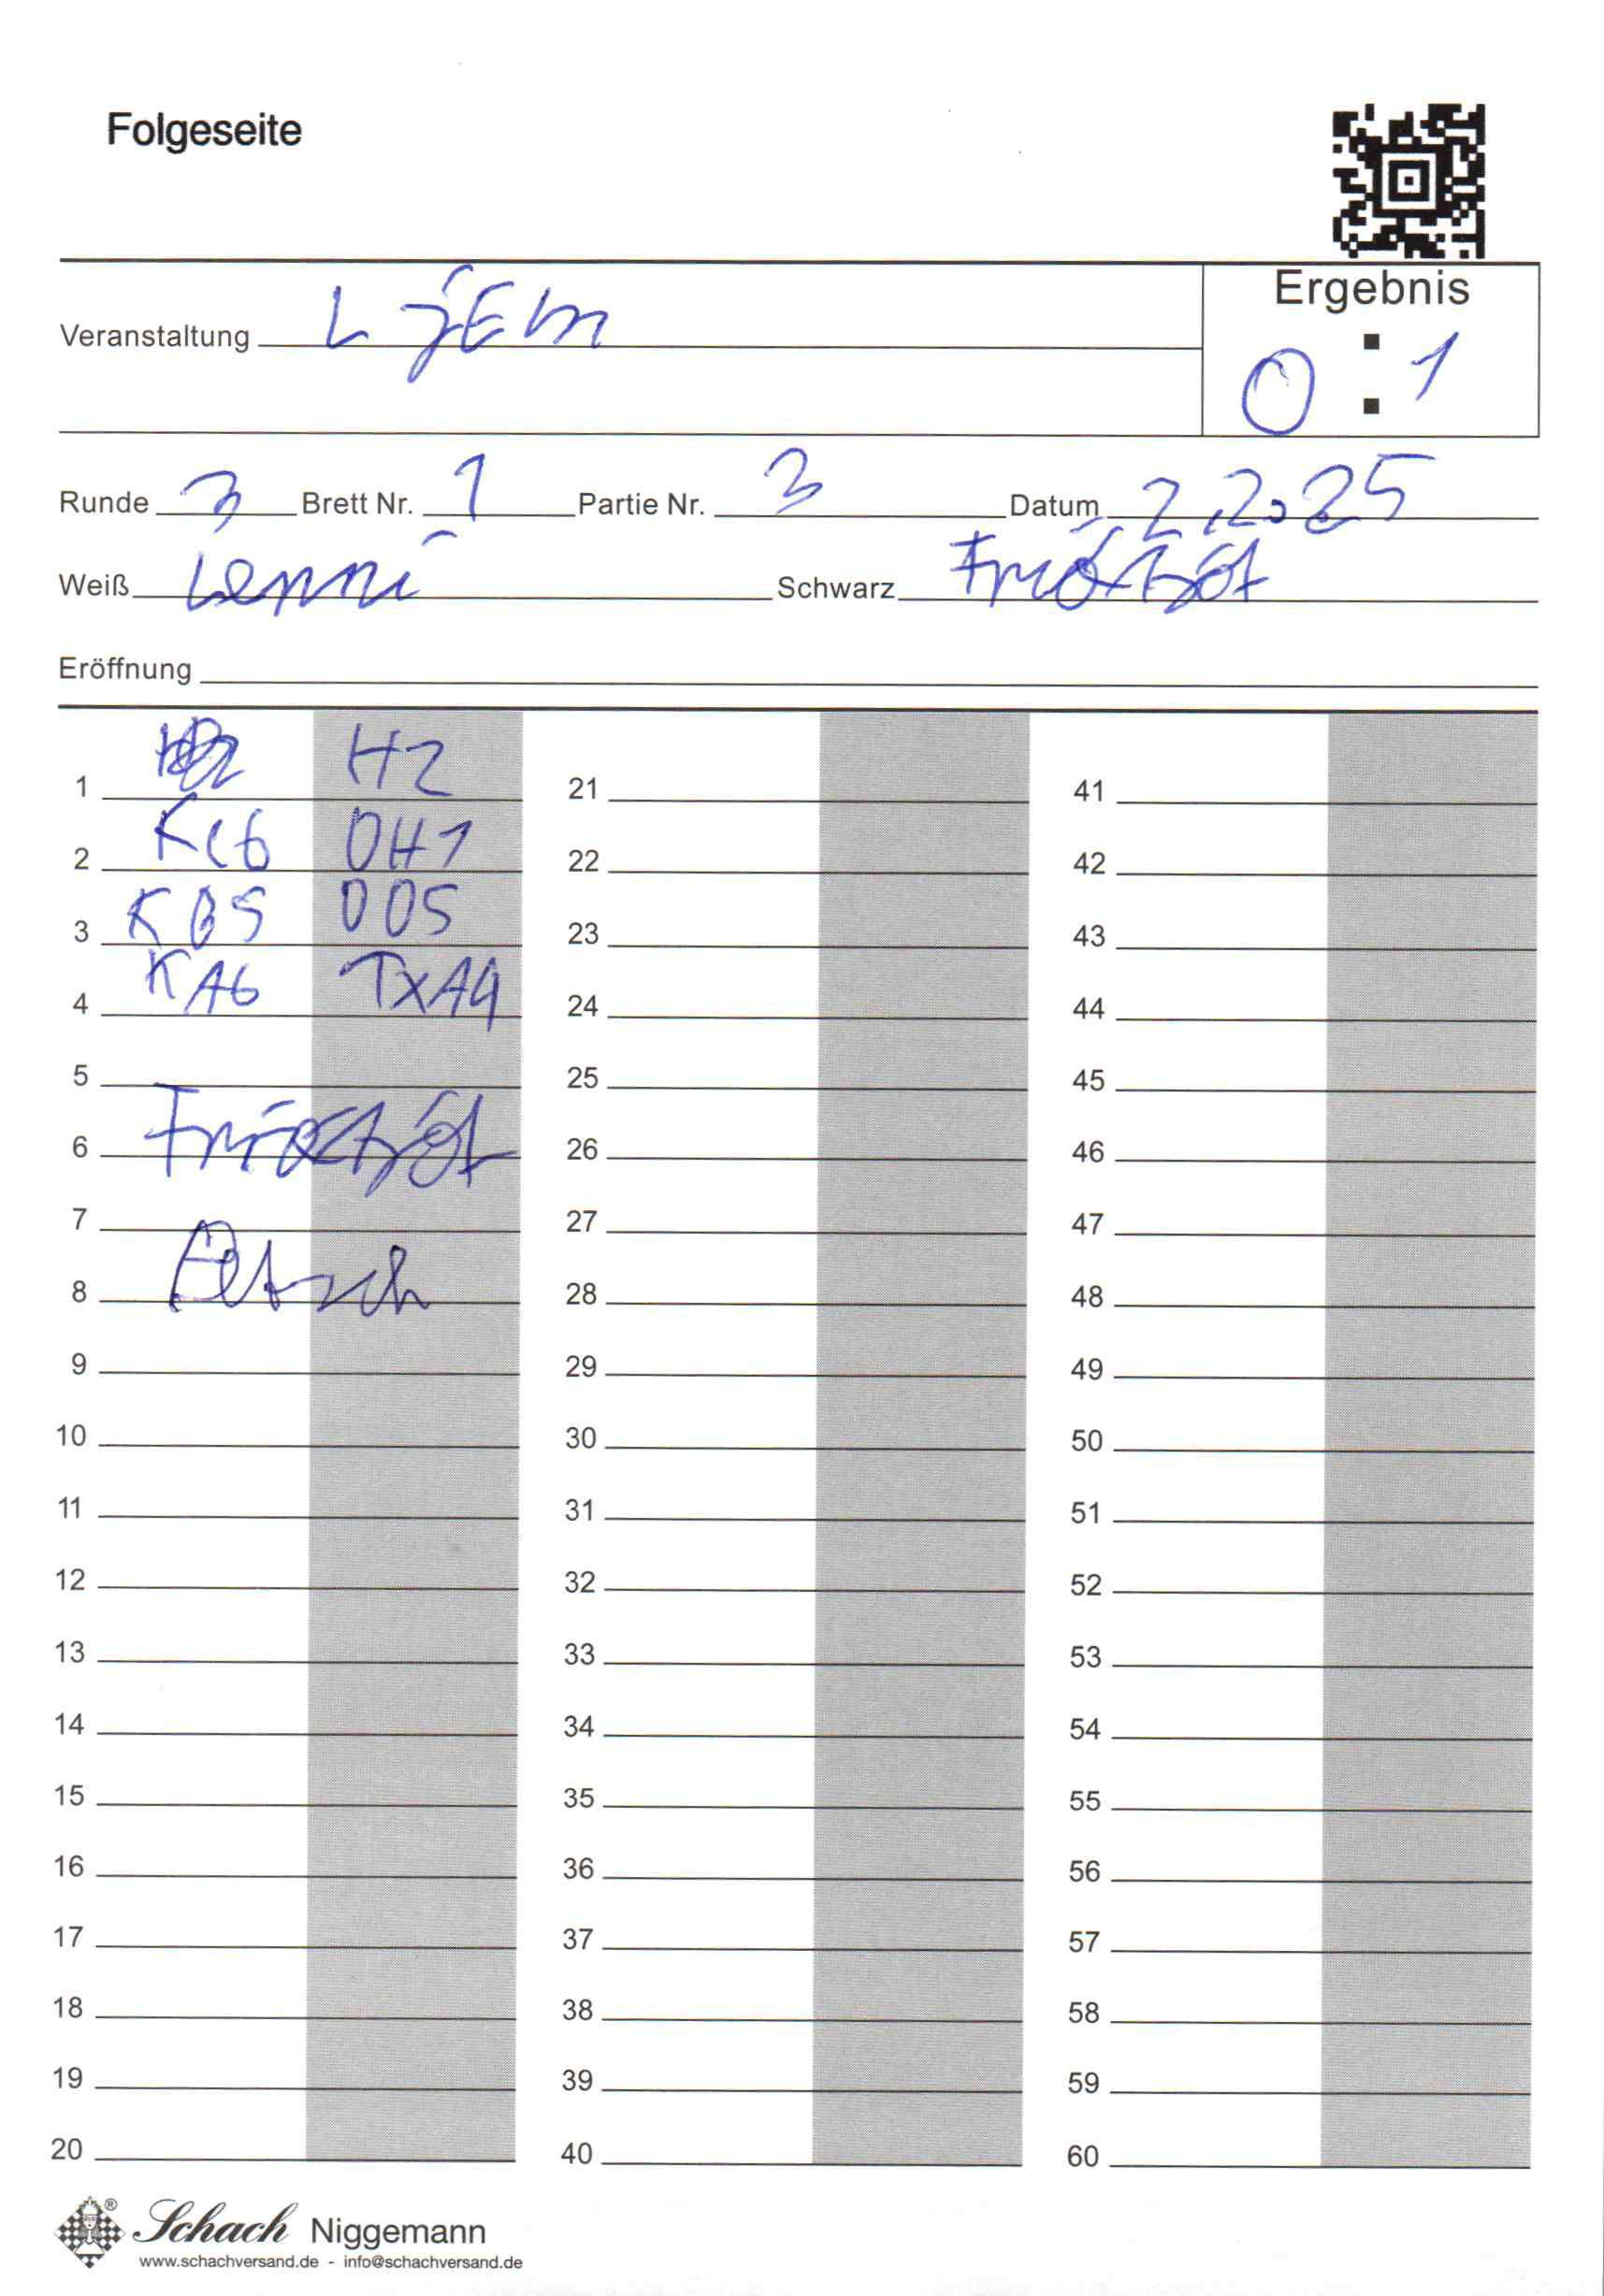 Folgeseite
Ergebnis
Veranstaltung LjEm
0 : 1
Runde 3 Brett Nr. 1 Partie Nr. 3 Datum 2.2.25
Weiß Lenni Schwarz
Eröffnung
1 H2 21 41
2 KC6 DH1 22 42
3 KB5 DD5 23 43
4 KA6 TXA4 24 44
5 25 45
6 26 46
7 27 47
8 28 48
9 29 49
10 30 50
11 31 51
12 32 52
13 33 53
14 34 54
15 35 55
16 36 56
17 37 57
18 38 58
19 39 59
20 40 60
® Schach Niggemann
www.schachversand.de - info@schachversand.de